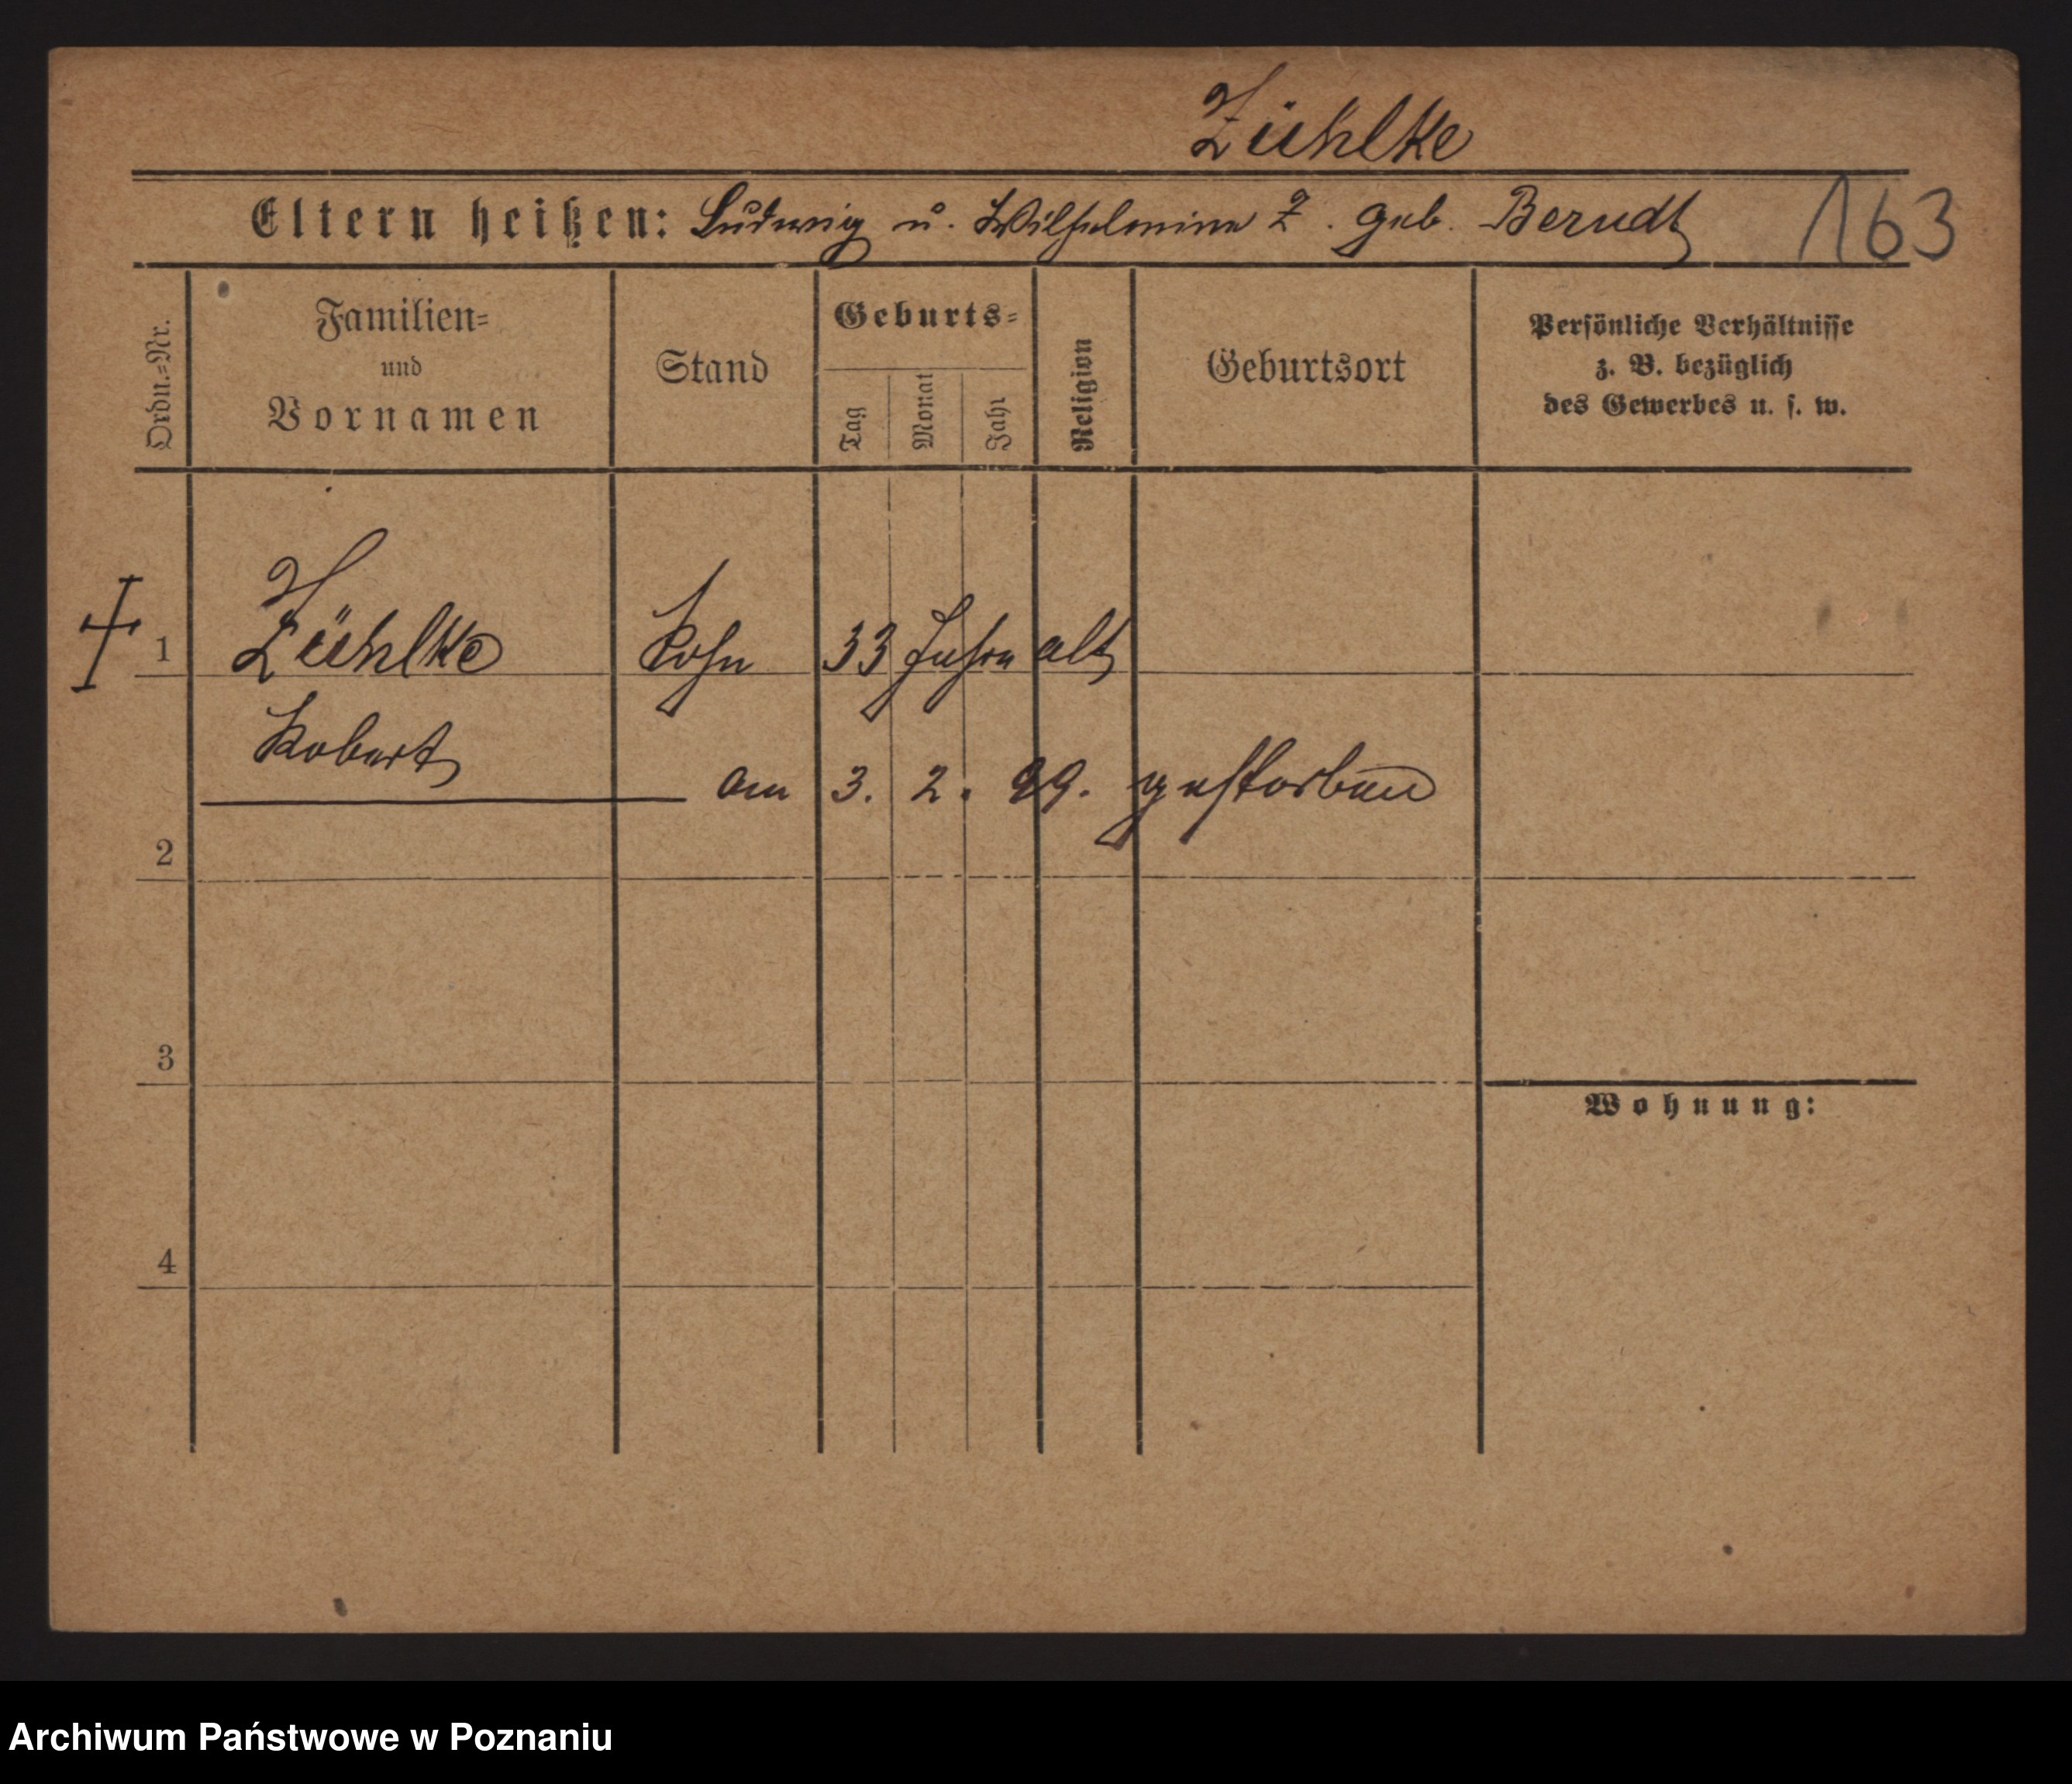 Zühlke
Eltern heißen: Ludwig u. Wilhelmine Z. geb. Berndt 163
Ordn.=Nr.
Familien=
und
Vornamen
Stand
Geburts=
Tag
Monat
Jahr
Religion
Geburtsort
Persönliche Verhältnisse
z. B. bezüglich
des Gewerbes u. s. w.
1 Zühlke Sohn 33 Jahre alt
Robert
am 3. 2. 99. gestorben
2
3
Wohnung:
4
Archiwum Państwowe w Poznaniu